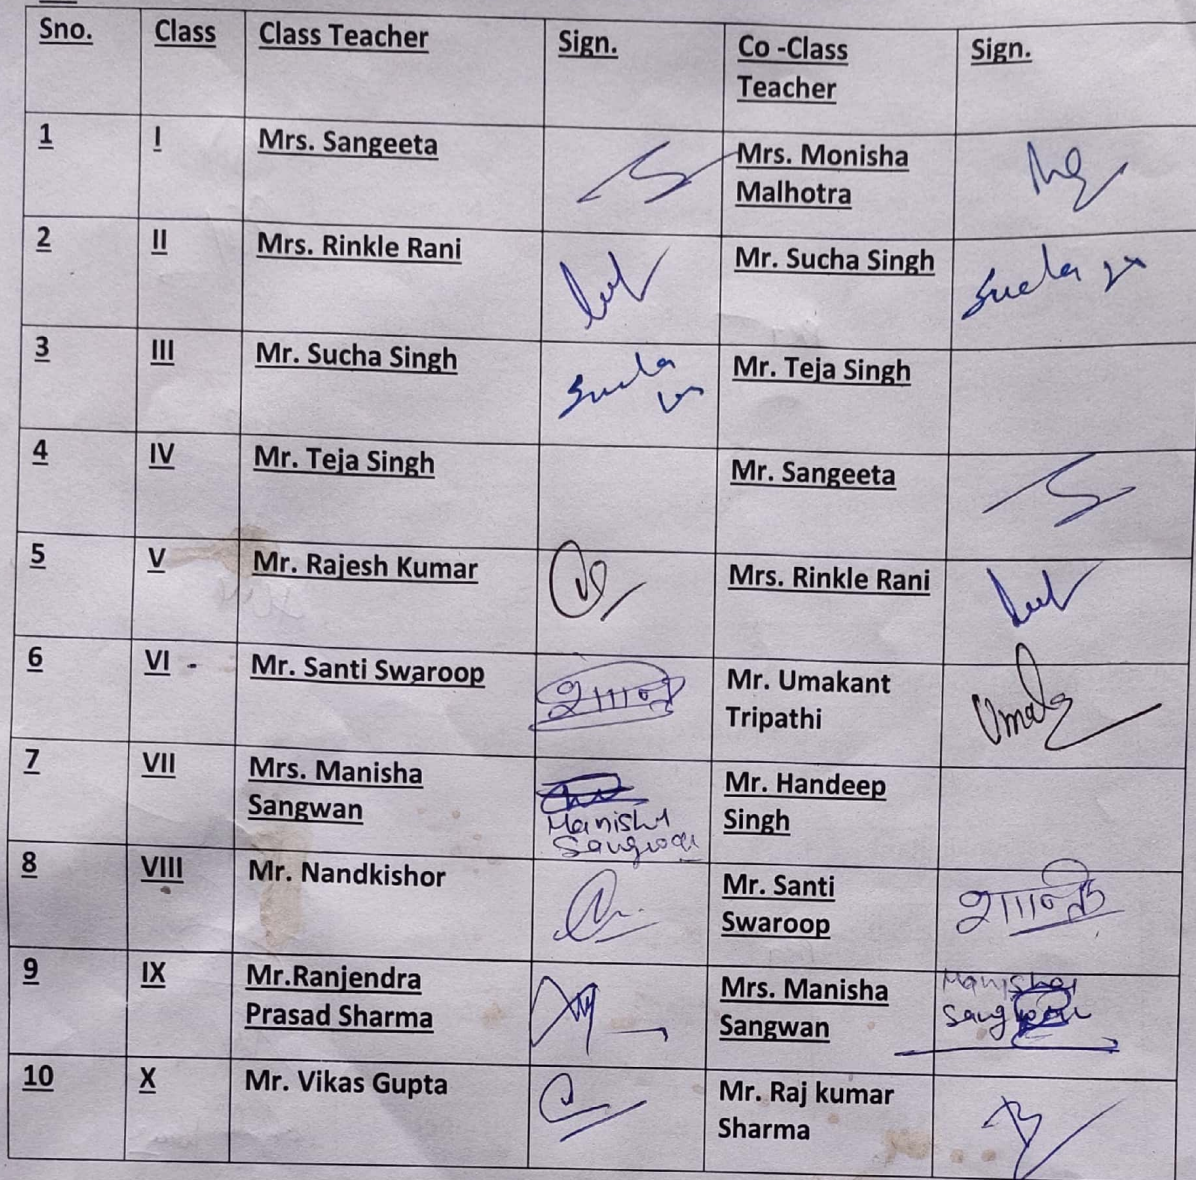 Sno. Class Class Teacher Sign. Co -Class Sign.
Teacher
1 I Mrs. Sangeeta Mrs. Monisha
Malhotra
2 II Mrs. Rinkle Rani Mr. Sucha Singh
3 III Mr. Sucha Singh Mr. Teja Singh
4 IV Mr. Teja Singh Mr. Sangeeta
5 V Mr. Rajesh Kumar Mrs. Rinkle Rani
6 VI - Mr. Santi Swaroop Mr. Umakant
Tripathi
7 VII Mrs. Manisha Mr. Handeep
Sangwan Singh
Manisha
Sangwan
8 VIII Mr. Nandkishor Mr. Santi
Swaroop
9 IX Mr.Ranjendra Mrs. Manisha Manisha
Prasad Sharma Sangwan Sangwan
10 X Mr. Vikas Gupta Mr. Raj kumar
Sharma